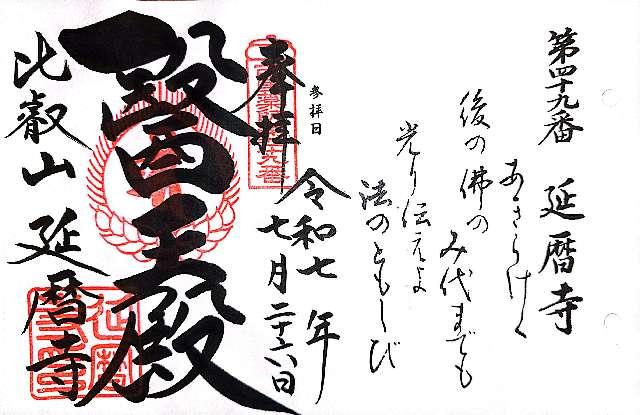 第四十九番 延暦寺
あきらけく
後の佛の
み代までも
光り伝えよ
法のともしび
参拝日
令和七年
七月二十六日
奉拝
醫王殿
比叡山 延暦寺